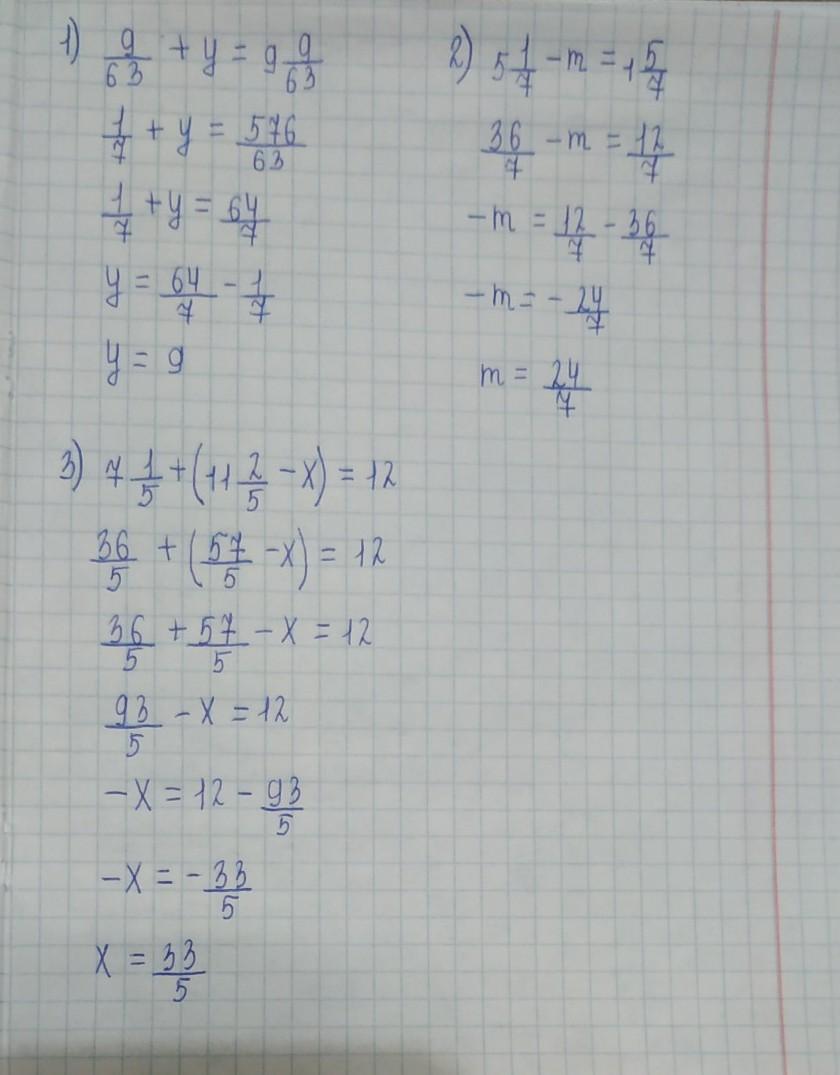 1) 9/63 + y = 9 9/63
1/7 + y = 576/63
1/7 + y = 64/7
y = 64/7 - 1/7
y = 9
2) 5 1/7 - m = 1 5/7
36/7 - m = 12/7
-m = 12/7 - 36/7
-m = - 24/7
m = 24/7
3) 7 1/5 + (11 2/5 - x) = 12
36/5 + (57/5 - x) = 12
36/5 + 57/5 - x = 12
93/5 - x = 12
-x = 12 - 93/5
-x = - 33/5
x = 33/5